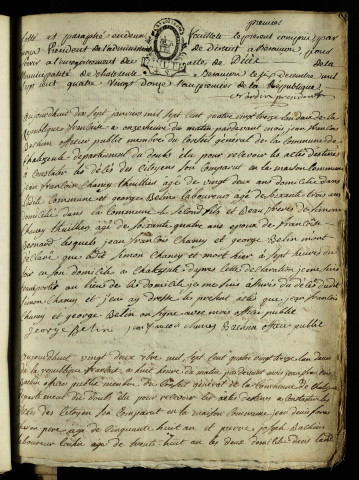 premier
Cotté et paraphé en deux feuillets le présent compris par
nous Président de l'administration de District à Besançon pour
servir à l'enregistrement des actes de Décès de la
Municipalité de chalezeule à Besançon le six décembre mil
sept cent quatre vingt douze l'an premier de la République
président
Aujourdhuit dix sept janvier mil Sept cent quatre vingt treize lan deux de la
Republique francoise a onze heure du matin pardevant moi jean francois
officier public membre du Conseil general de la Commune de
Chalezeule departement du doubs élu pour recevoir les actes destines
a Constater les Décès des Citoyens son Comparut en la maison Commune
jean francois Chaney thuillier âgé de vingt deux ans domicilie dans
ladite Commune et george Belin laboureur agé de soixante trois ans
domicilié dans la Commune le Second fils et Beau frere de Simon
Chaney thuillier agé de soixante quatre ans epoux de francoise
Bernard lesquels jean francois Chaney et george Belin mont
declaré que ledit Simon Chaney est mort hier a Sept heures du
soir en son domicile a Chalezeule dapres cette declaration je me suis
transportes au lieux de ce domicile je me suis assure du décès dudit
Simon Chaney et j'en ay dressé le present acte que jean francois
Chaney et george Belin on signé avec moi officier public
george Belin jean francois chaney officier public
Aujourdhuy vingt deux mil Sept cent quatre vingt treize lan deux
de la republique francoise a huit heure du matin pardevant moi jean francois
officier public membre du Conseil général de la Commune de
departement du doubs élu pour recevoir les actes destines a Constater les
décès des Citoyens son Comparut en la maison Commune jean denis
son pere agé de cinquante huit an et pierre joseph
laboureur agé de trente huit an les deux domicilié dans ladite